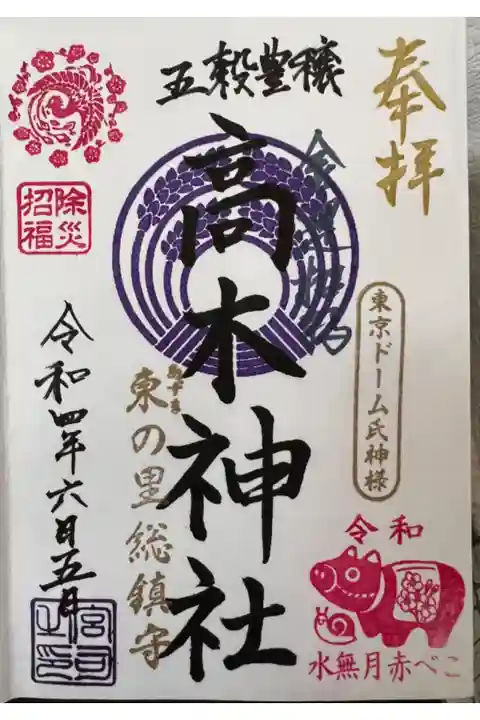 奉拝
東京ドーム氏神様
五穀豊穣
高木神社
東の里総鎮守
あずま
除災
招福
令和四年六月五日
宮司
之印
令和
水無月赤べこ